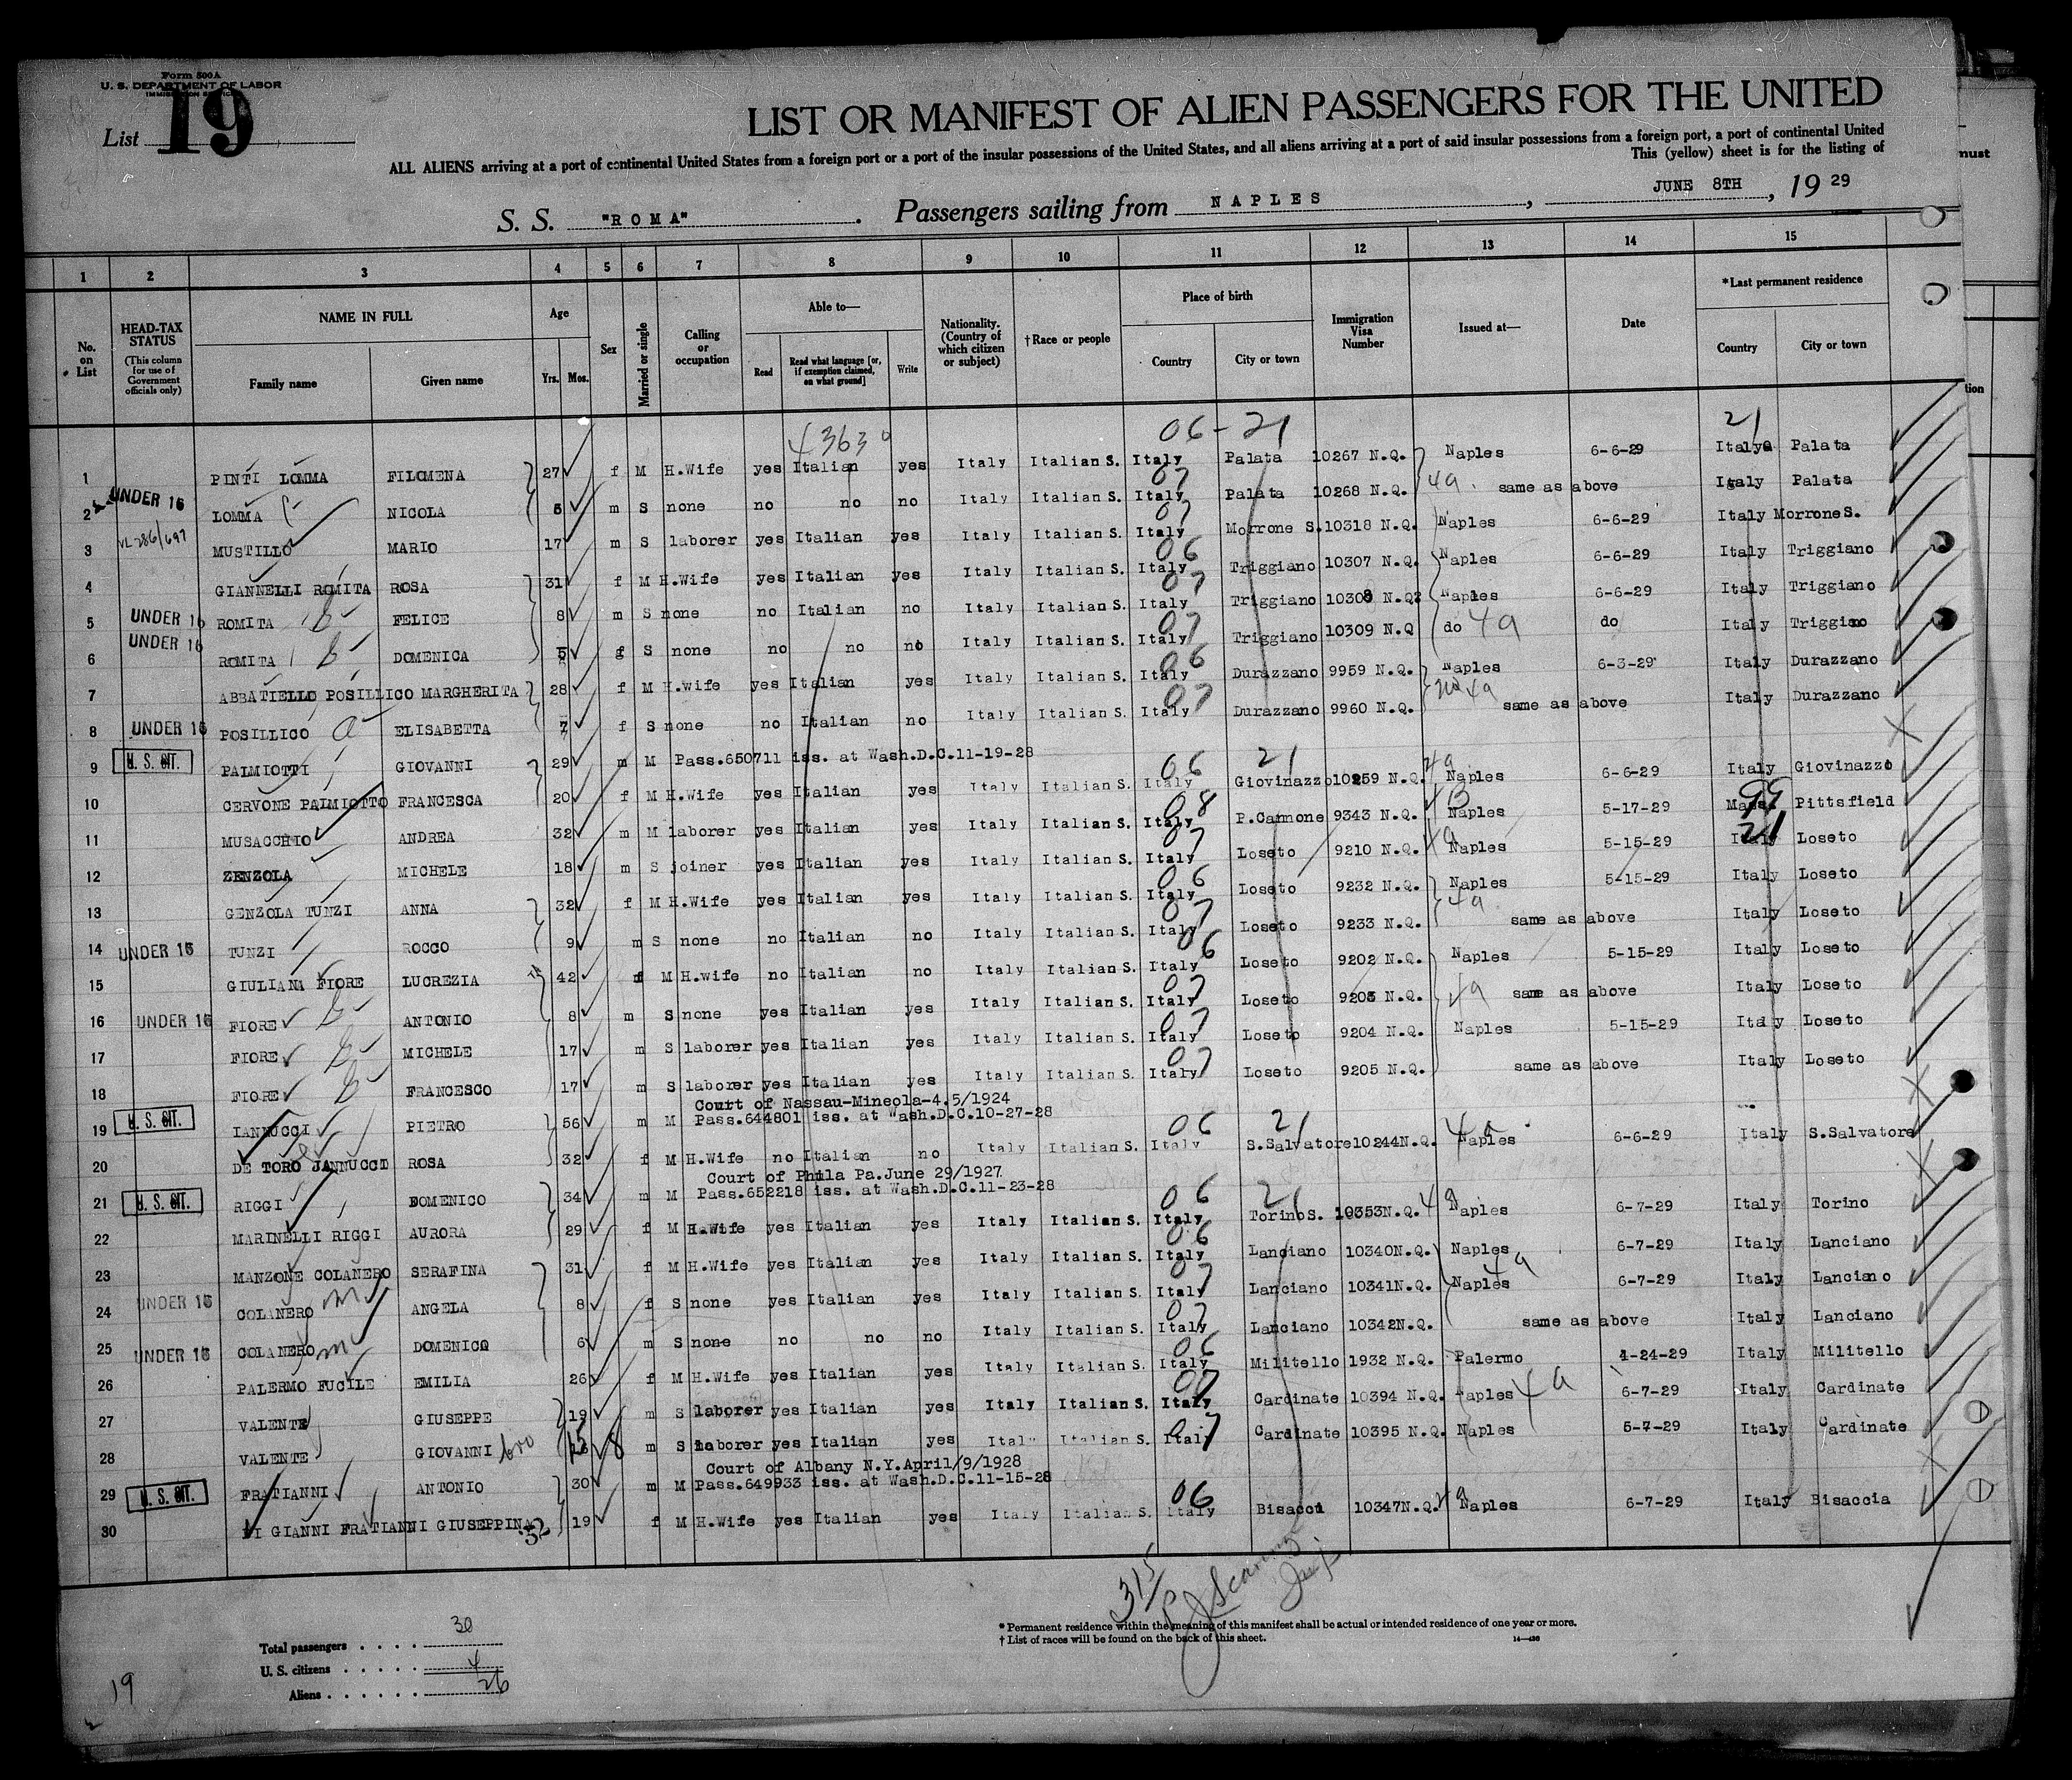 Form 500A
U. S. DEPARTMENT OF LABOR
IMMIGRATION SERVICE
List 19
LIST OR MANIFEST OF ALIEN PASSENGERS FOR THE UNITED
ALL ALIENS arriving at a port of continental United States from a foreign port or a port of the insular possessions of the United States, and all aliens arriving at a port of said insular possessions from a foreign port, a port of continental United
This (yellow) sheet is for the listing of
must
S. S. "ROMA" . Passengers sailing from NAPLES , JUNE 8TH , 19 29
1 2 3 4 5 6 7 8 9 10 11 12 13 14 15
No. on List
HEAD-TAX STATUS
(This column for use of Government officials only)
NAME IN FULL
Family name
Given name
Age
Yrs. Mos.
Sex
Married or single
Calling or occupation
Able to—
Read
Read what language [or, if exemption claimed, on what ground]
Write
Nationality. (Country of which citizen or subject)
†Race or people
Place of birth
Country
City or town
Immigration Visa Number
Issued at—
Date
*Last permanent residence
Country
City or town
tion
06-21 21
1 PINTI LOMMA FILOMENA 27 f M H.Wife yes Italian yes Italy Italian S. Italy Palata 10267 N.Q. Naples 6-6-29 Italy Palata
2 UNDER 16 LOMMA NICOLA 5 m S none no no no Italy Italian S. Italy 07 Palata 10268 N.Q. 4a same as above Italy Palata
3 MUSTILLO MARIO 17 m S laborer yes Italian yes Italy Italian S. Italy 07 Morrone S. 10318 N.Q. Naples 6-6-29 Italy Morrone S.
4 GIANNELLI ROMITA ROSA 31 f M H.Wife yes Italian yes Italy Italian S. Italy 06 Triggiano 10307 N.Q. Naples 6-6-29 Italy Triggiano
5 UNDER 16 ROMITA FELICE 8 m S none no Italian no Italy Italian S. Italy 07 Triggiano 10308 N.Q. Naples 6-6-29 Italy Triggiano
6 UNDER 16 ROMITA DOMENICA 5 f S none no no no Italy Italian S. Italy 07 Triggiano 10309 N.Q do 4a do Italy Triggiano
7 ABBATIELLO POSILLICO MARGHERITA 28 f M H.wife yes Italian yes Italy Italian S. Italy 06 Durazzano 9959 N.Q. Naples 6-3-29 Italy Durazzano
8 UNDER 16 POSILLICO ELISABETTA 7 f S none no Italian no Italy Italian S. Italy 07 Durazzano 9960 N.Q. 4a same as above Italy Durazzano
9 U. S. CIT. PALMIOTTI GIOVANNI 29 m M Pass.650711 iss. at Wash.D.C.11-19-28
10 CERVONE PALMIOTTO FRANCESCA 20 f M H.Wife yes Italian yes Italy Italian S. Italy 06 21 Giovinazzo 10259 N.Q. 4a Naples 6-6-29 Italy Giovinazzo
11 MUSACCHIO ANDREA 32 m M laborer yes Italian yes Italy Italian S. Italy 08 P.Cannone 9343 N.Q. Naples 5-17-29 Mass. 99 Pittsfield
12 ZENZOLA MICHELE 18 m S joiner yes Italian yes Italy Italian S. Italy 07 Loseto 9210 N.Q. 4a Naples 5-15-29 Italy 21 Loseto
13 GENZOLA TUNZI ANNA 32 f M H.Wife yes Italian yes Italy Italian S. Italy 06 Loseto 9232 N.Q. Naples 5-15-29 Italy Loseto
14 UNDER 16 TUNZI ROCCO 9 m S none no Italian no Italy Italian S. Italy 07 Loseto 9233 N.Q. 4a same as above Italy Loseto
15 GIULIANI FIORE LUCREZIA 42 f M H.wife no Italian no Italy Italian S. Italy 06 Loseto 9202 N.Q. Naples 5-15-29 Italy Loseto
16 UNDER 16 FIORE ANTONIO 8 m S none yes Italian yes Italy Italian S. Italy 07 Loseto 9203 N.Q. 4a same as above Italy Loseto
17 FIORE MICHELE 17 m S laborer yes Italian yes Italy Italian S. Italy 07 Loseto 9204 N.Q. Naples 5-15-29 Italy Loseto
18 FIORE FRANCESCO 17 m S laborer yes Italian yes Italy Italian S. Italy 07 Loseto 9205 N.Q. same as above Italy Loseto
Court of Nassau-Mineola-4.5/1924
19 U. S. CIT. IANNUCCI PIETRO 56 m M Pass.644801 iss. at Wash.D.C.10-27-28
20 DE TORO JANNUCCI ROSA 32 f M H.Wife no Italian no Italy Italian S. Italy 06 21 S.Salvatore 10244N.Q. 4a Naples 6-6-29 Italy S.Salvatore
Court of Phila Pa.June 29/1927
21 U. S. CIT. RIGGI DOMENICO 34 m M Pass.652218 iss. at Wash.D.C.11-23-28
22 MARINELLI RIGGI AURORA 29 f M H.Wife yes Italian yes Italy Italian S. Italy 06 21 Torino S. 10353N.Q. 4a Naples 6-7-29 Italy Torino
23 MANZONE COLANERO SERAFINA 31 f M H.Wife yes Italian yes Italy Italian S. Italy 06 Lanciano 10340N.Q. Naples 6-7-29 Italy Lanciano
24 UNDER 16 COLANERO ANGELA 8 f S none yes Italian yes Italy Italian S. Italy 07 Lanciano 10341N.Q. 4a Naples 6-7-29 Italy Lanciano
25 UNDER 16 COLANERO DOMENICO 6 m S none no no no Italy Italian S. Italy 07 Lanciano 10342N.Q. same as above Italy Lanciano
26 PALERMO FUCILE EMILIA 26 f M H.Wife yes Italian yes Italy Italian S. Italy 06 Militello 1932 N.Q. Palermo 4-24-29 Italy Militello
27 VALENTE GIUSEPPE 19 m S laborer yes Italian yes Italy Italian S. Italy 07 Cardinate 10394 N.Q. Naples 4a 6-7-29 Italy Cardinate
28 VALENTE GIOVANNI bro m S laborer yes Italian yes Italy Italian S. Italy 07 Cardinate 10395 N.Q. Naples 5-7-29 Italy Cardinate
Court of Albany N.Y.April/9/1928
29 U. S. CIT. FRATIANNI ANTONIO 30 m M Pass.649933 iss. at Wash.D.C.11-15-28
30 DI GIANNI FRATIANNI GIUSEPPINA 19 f M H.Wife yes Italian yes Italy Italian S. Italy 06 Bisacci 10347N.Q. Naples 6-7-29 Italy Bisaccia
32
315
* Permanent residence within the meaning of this manifest shall be actual or intended residence of one year or more.
† List of races will be found on the back of this sheet.
Total passengers . . . . 30
U. S. citizens . . . . . 4
Aliens . . . . . . 26
19